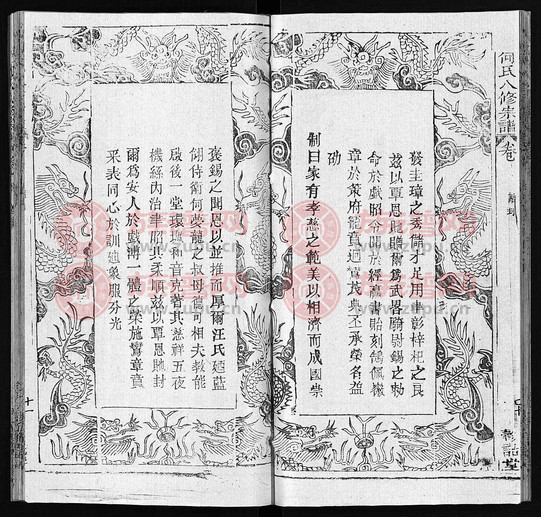 何氏八修宗譜 卷
發圭璋之秀儲才足用聿彰梓杞之良
茲以覃恩貤贈爾為武畧騎尉錫之勅
命於戲昭令聞於經籯書貽刻鵠佩徽
章於策府寵賁迴鸞其典丕承榮名益
劭
制曰家有孝慈之範美以相濟而成國崇
褒錫之聞恩以並推而厚爾汪氏廼藍
翎侍衛何夢龍之叔母龍可相夫教能
啟後一堂環珮和音克著其慈祥五夜
機絲內治聿昭其柔順茲以覃恩貤封
爾為安人於戲溥一體之榮施鸞章賁
采表同心於訓迪象服分光
十